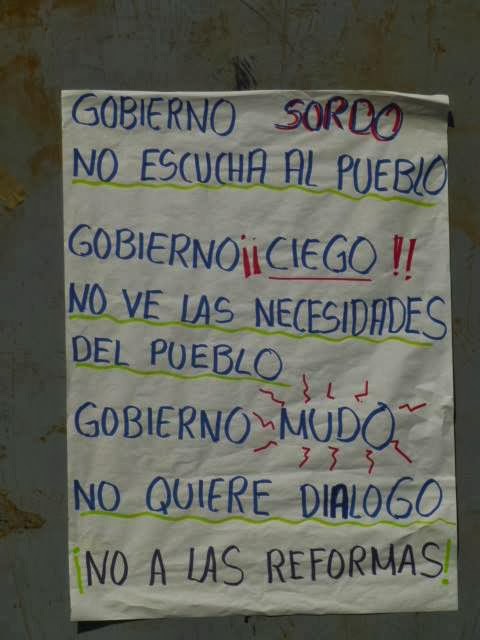 GOBIERNO SORDO
NO ESCUCHA AL PUEBLO
GOBIERNO ¡¡CIEGO!!
NO VE LAS NECESIDADES
DEL PUEBLO
GOBIERNO MUDO
NO QUIERE DIALOGO
¡NO A LAS REFORMAS!